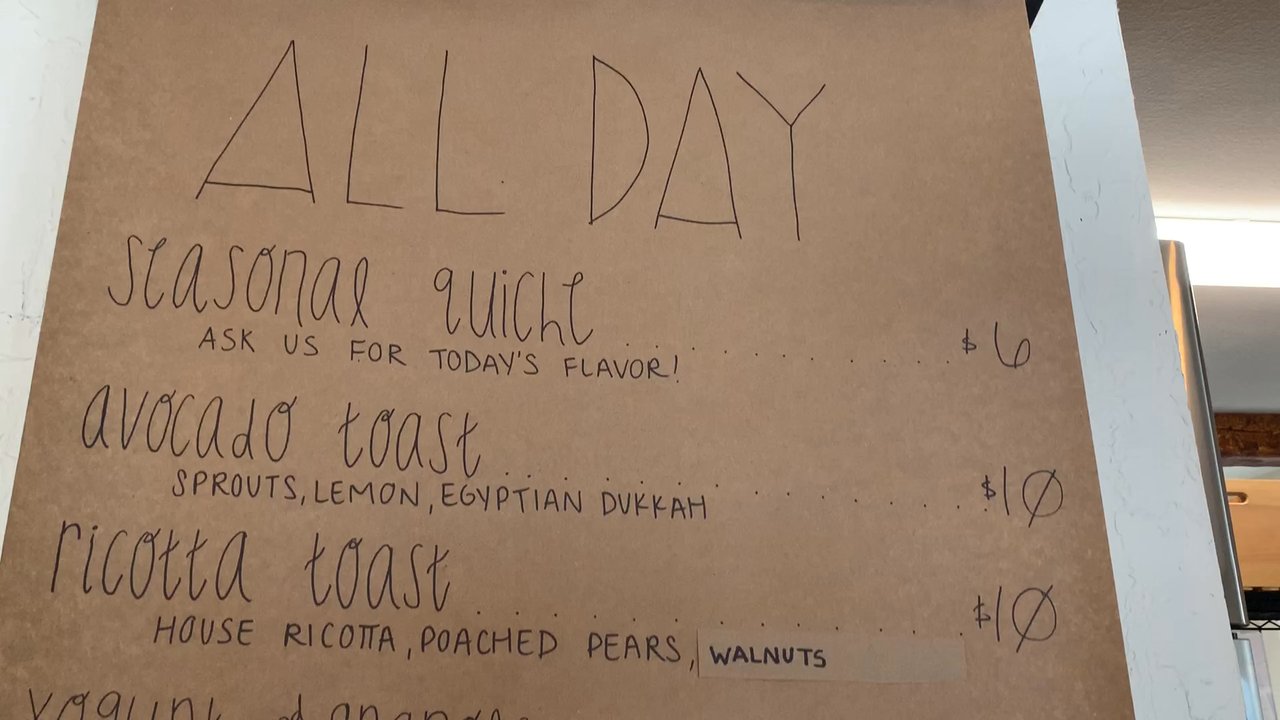 ALL DAY
seasonal quiche
ASK US FOR TODAY'S FLAVOR! $6
avocado toast
SPROUTS, LEMON, EGYPTIAN DUKKAH $10
ricotta toast
HOUSE RICOTTA, POACHED PEARS, WALNUTS $10